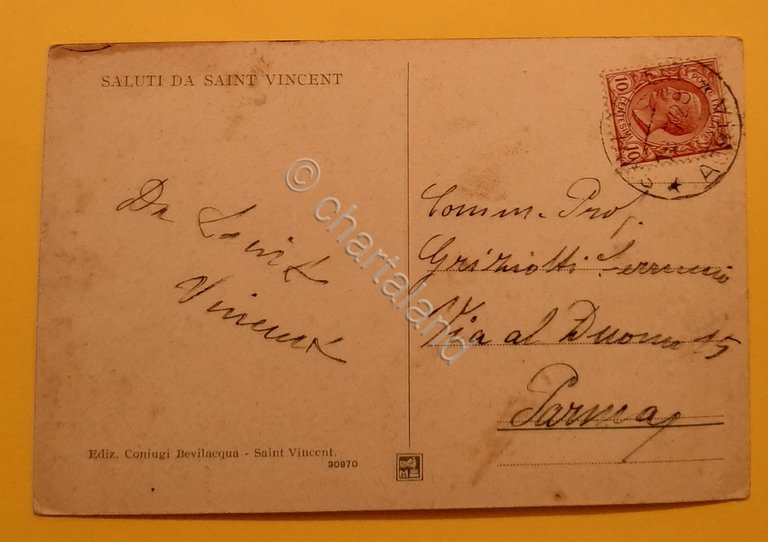 SALUTI DA SAINT VINCENT
Da Saint
Vincent
10 CENTESIMI 10
Comm. Prof.
Griziotti Ferruccio
Via al Duomo 15
Parma
Ediz. Coniugi Bevilacqua - Saint Vincent.
30970
© chartaland